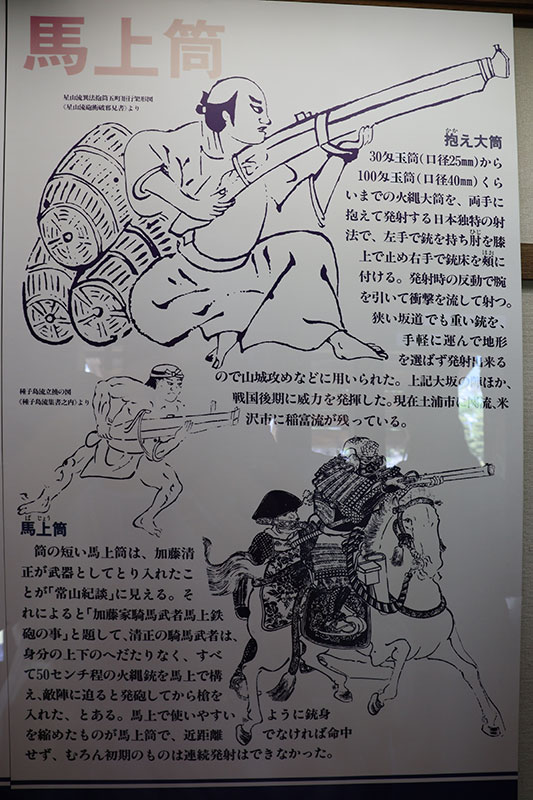 馬上筒
星山流異法抱筒五町矩行架形図
(星山流砲術破邪見書)より
抱え大筒
30匁玉筒(口径25mm)から
100匁玉筒(口径40mm)くら
いまでの火縄大筒を、両手に
抱えて発射する日本独特の射
法で、左手で銃を持ち肘を膝
上で止め右手で銃床を頬に
付ける。発射時の反動で腕
を引いて衝撃を流して射つ。
狭い坂道でも重い銃を、
手軽に運んで地形
を選ばず発射出来る
ので山城攻めなどに用いられた。上記大坂の陣ほか、
戦国後期に威力を発揮した。現在土浦市に流、米
沢市に稲富流が残っている。
種子島流立掻の図
(種子島流集書之内)より
馬上筒
筒の短い馬上筒は、加藤清
正が武器としてとり入れたこ
とが「常山紀談」に見える。そ
れによると「加藤家騎馬武者馬上鉄
砲の事」と題して、清正の騎馬武者は、
身分の上下のへだたりなく、すべ
て50センチ程の火縄銃を馬上で構
え、敵陣に迫ると発砲してから槍を
入れた、とある。馬上で使いやすいように銃身
を縮めたものが馬上筒で、近距離でなければ命中
せず、むろん初期のものは連続発射はできなかった。